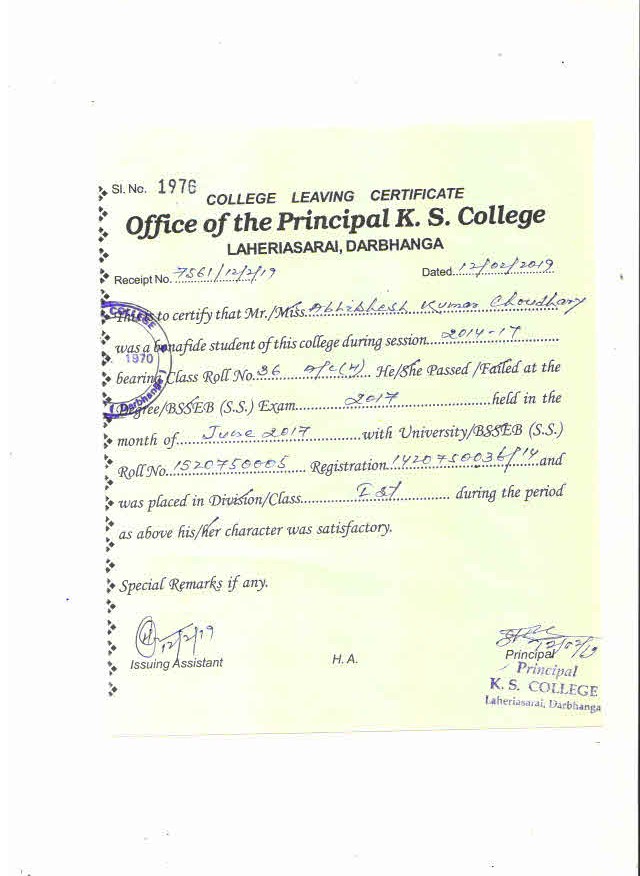 Sl. No. 1976
COLLEGE LEAVING CERTIFICATE
Office of the Principal K. S. College
LAHERIASARAI, DARBHANGA
Receipt No. 7561/12/2/19 Dated. 12/02/2019
This is to certify that Mr./Miss. Abhishesh Kumar Choudhary
was a bonafide student of this college during session 2014-17
bearing Class Roll No. 36 A/c(H) He/She Passed /Failed at the
Degree/BSSEB (S.S.) Exam 2017 held in the
month of June 2017 with University/BSSEB (S.S.)
Roll No. 1520750005 Registration 1420750036/14 and
was placed in Division/Class Ist during the period
as above his/her character was satisfactory.
Special Remarks if any.
12/2/19
Issuing Assistant H. A. Principal
12/02/19
Principal
K. S. COLLEGE
Laheriasarai, Darbhanga
COLLEGE
1970
(Darbhanga)